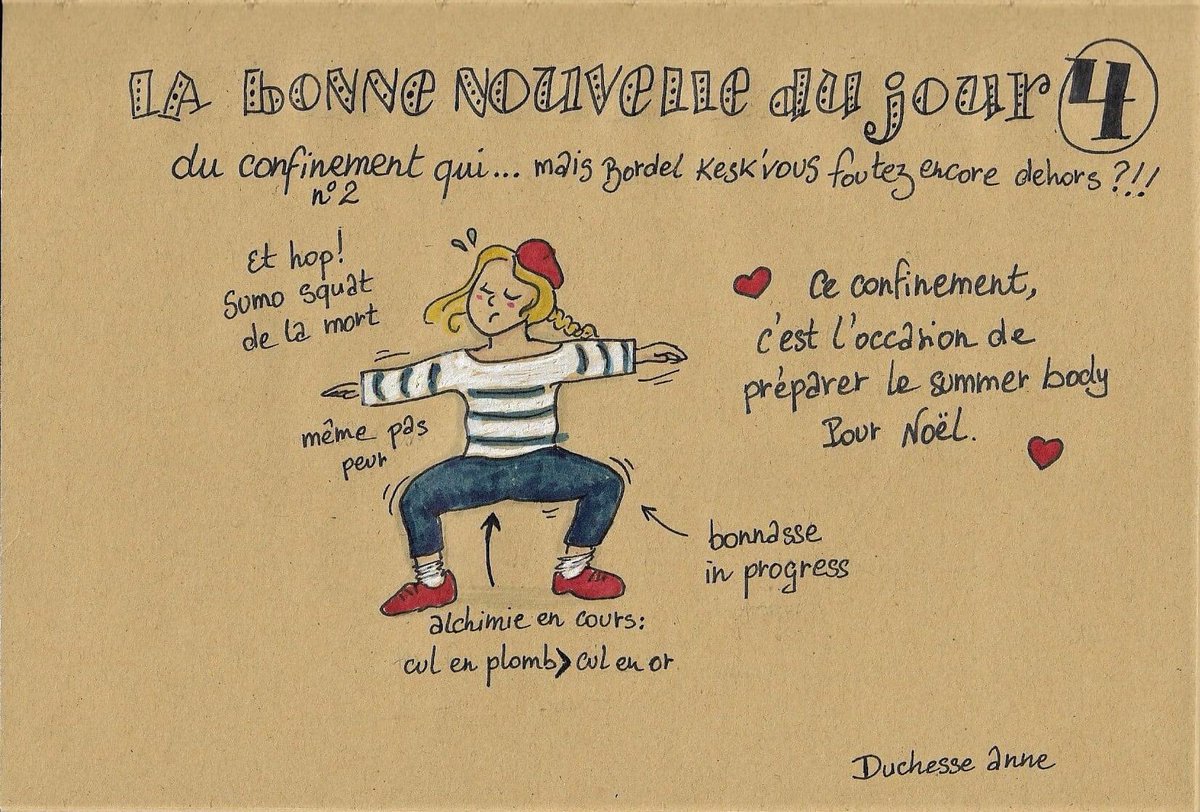 LA bonne nouvelle du jour 4
du confinement qui... mais Bordel Kesk'vous foutez encore dehors ?!!!
n°2
Et hop!
Sumo squat
de la mort
même pas
peur
♥ Ce confinement,
c'est l'occasion de
préparer le summer body
Pour Noël. ♥
bonnasse
in progress
alchimie en cours:
cul en plomb > cul en or
Duchesse anne